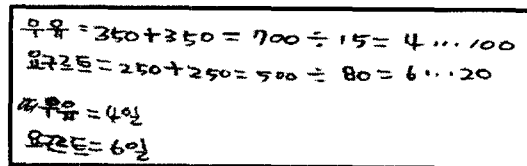 우유 = 350+350 = 700 ÷ 15 = 4 ... 100
요구르트 = 250+250 = 500 ÷ 80 = 6 ... 20
우유 = 4일
요구르트 = 6일